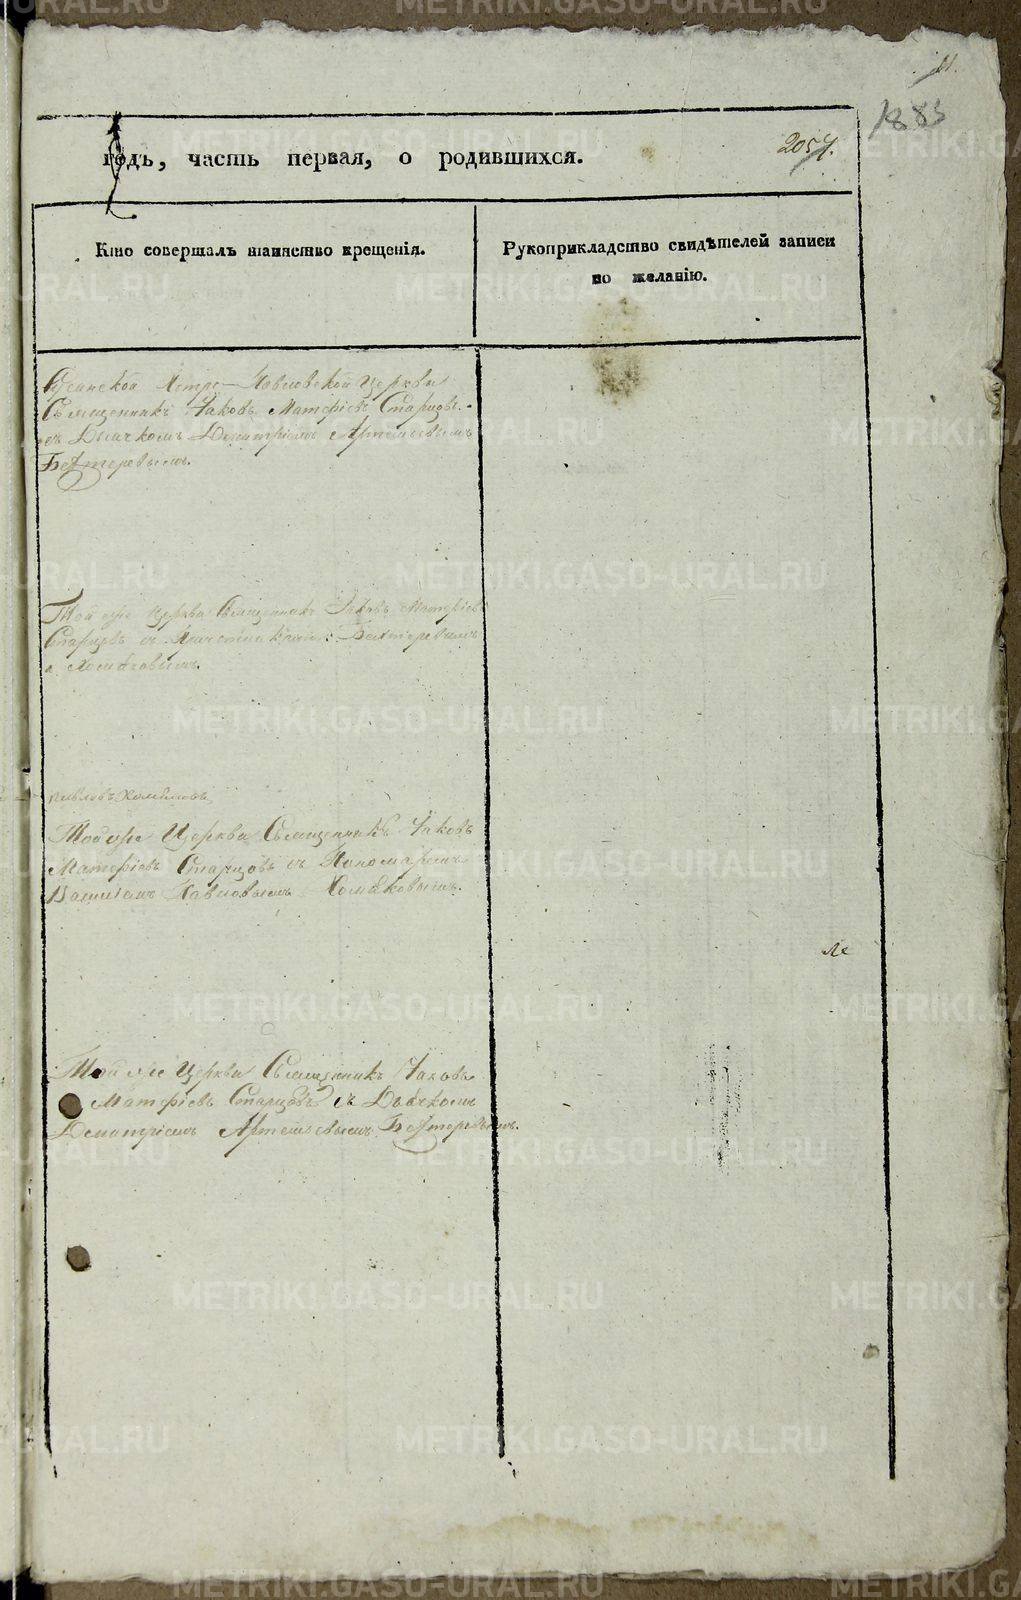 11.
1883
годъ, часть первая, о родившихся.
2057.
Кто совершалъ таинство крещенія.
Рукоприкладство свидѣтелей записи
по желанію.
Петро-Павловской Церкви
Священникъ Іаковъ Матѳіевъ Старцовъ
съ Дьячкомъ Димитріемъ Артемьевымъ
Бехтеревымъ.
Той же Церкви Священникъ Іаковъ Матѳіевъ
Старцовъ съ Причетниками: Бехтеревымъ
и Хомяковымъ.
Павловъ Хомяковъ
Той же Церкви Священникъ Іаковъ
Матѳіевъ Старцовъ съ Пономаремъ
Павловымъ Хомяковымъ.
Той же Церкви Священникъ Іаковъ
Матѳіевъ Старцовъ съ Дьячкомъ
Димитріемъ Артемьевымъ Бехтеревымъ.
METRIKI.GASO-URAL.RU